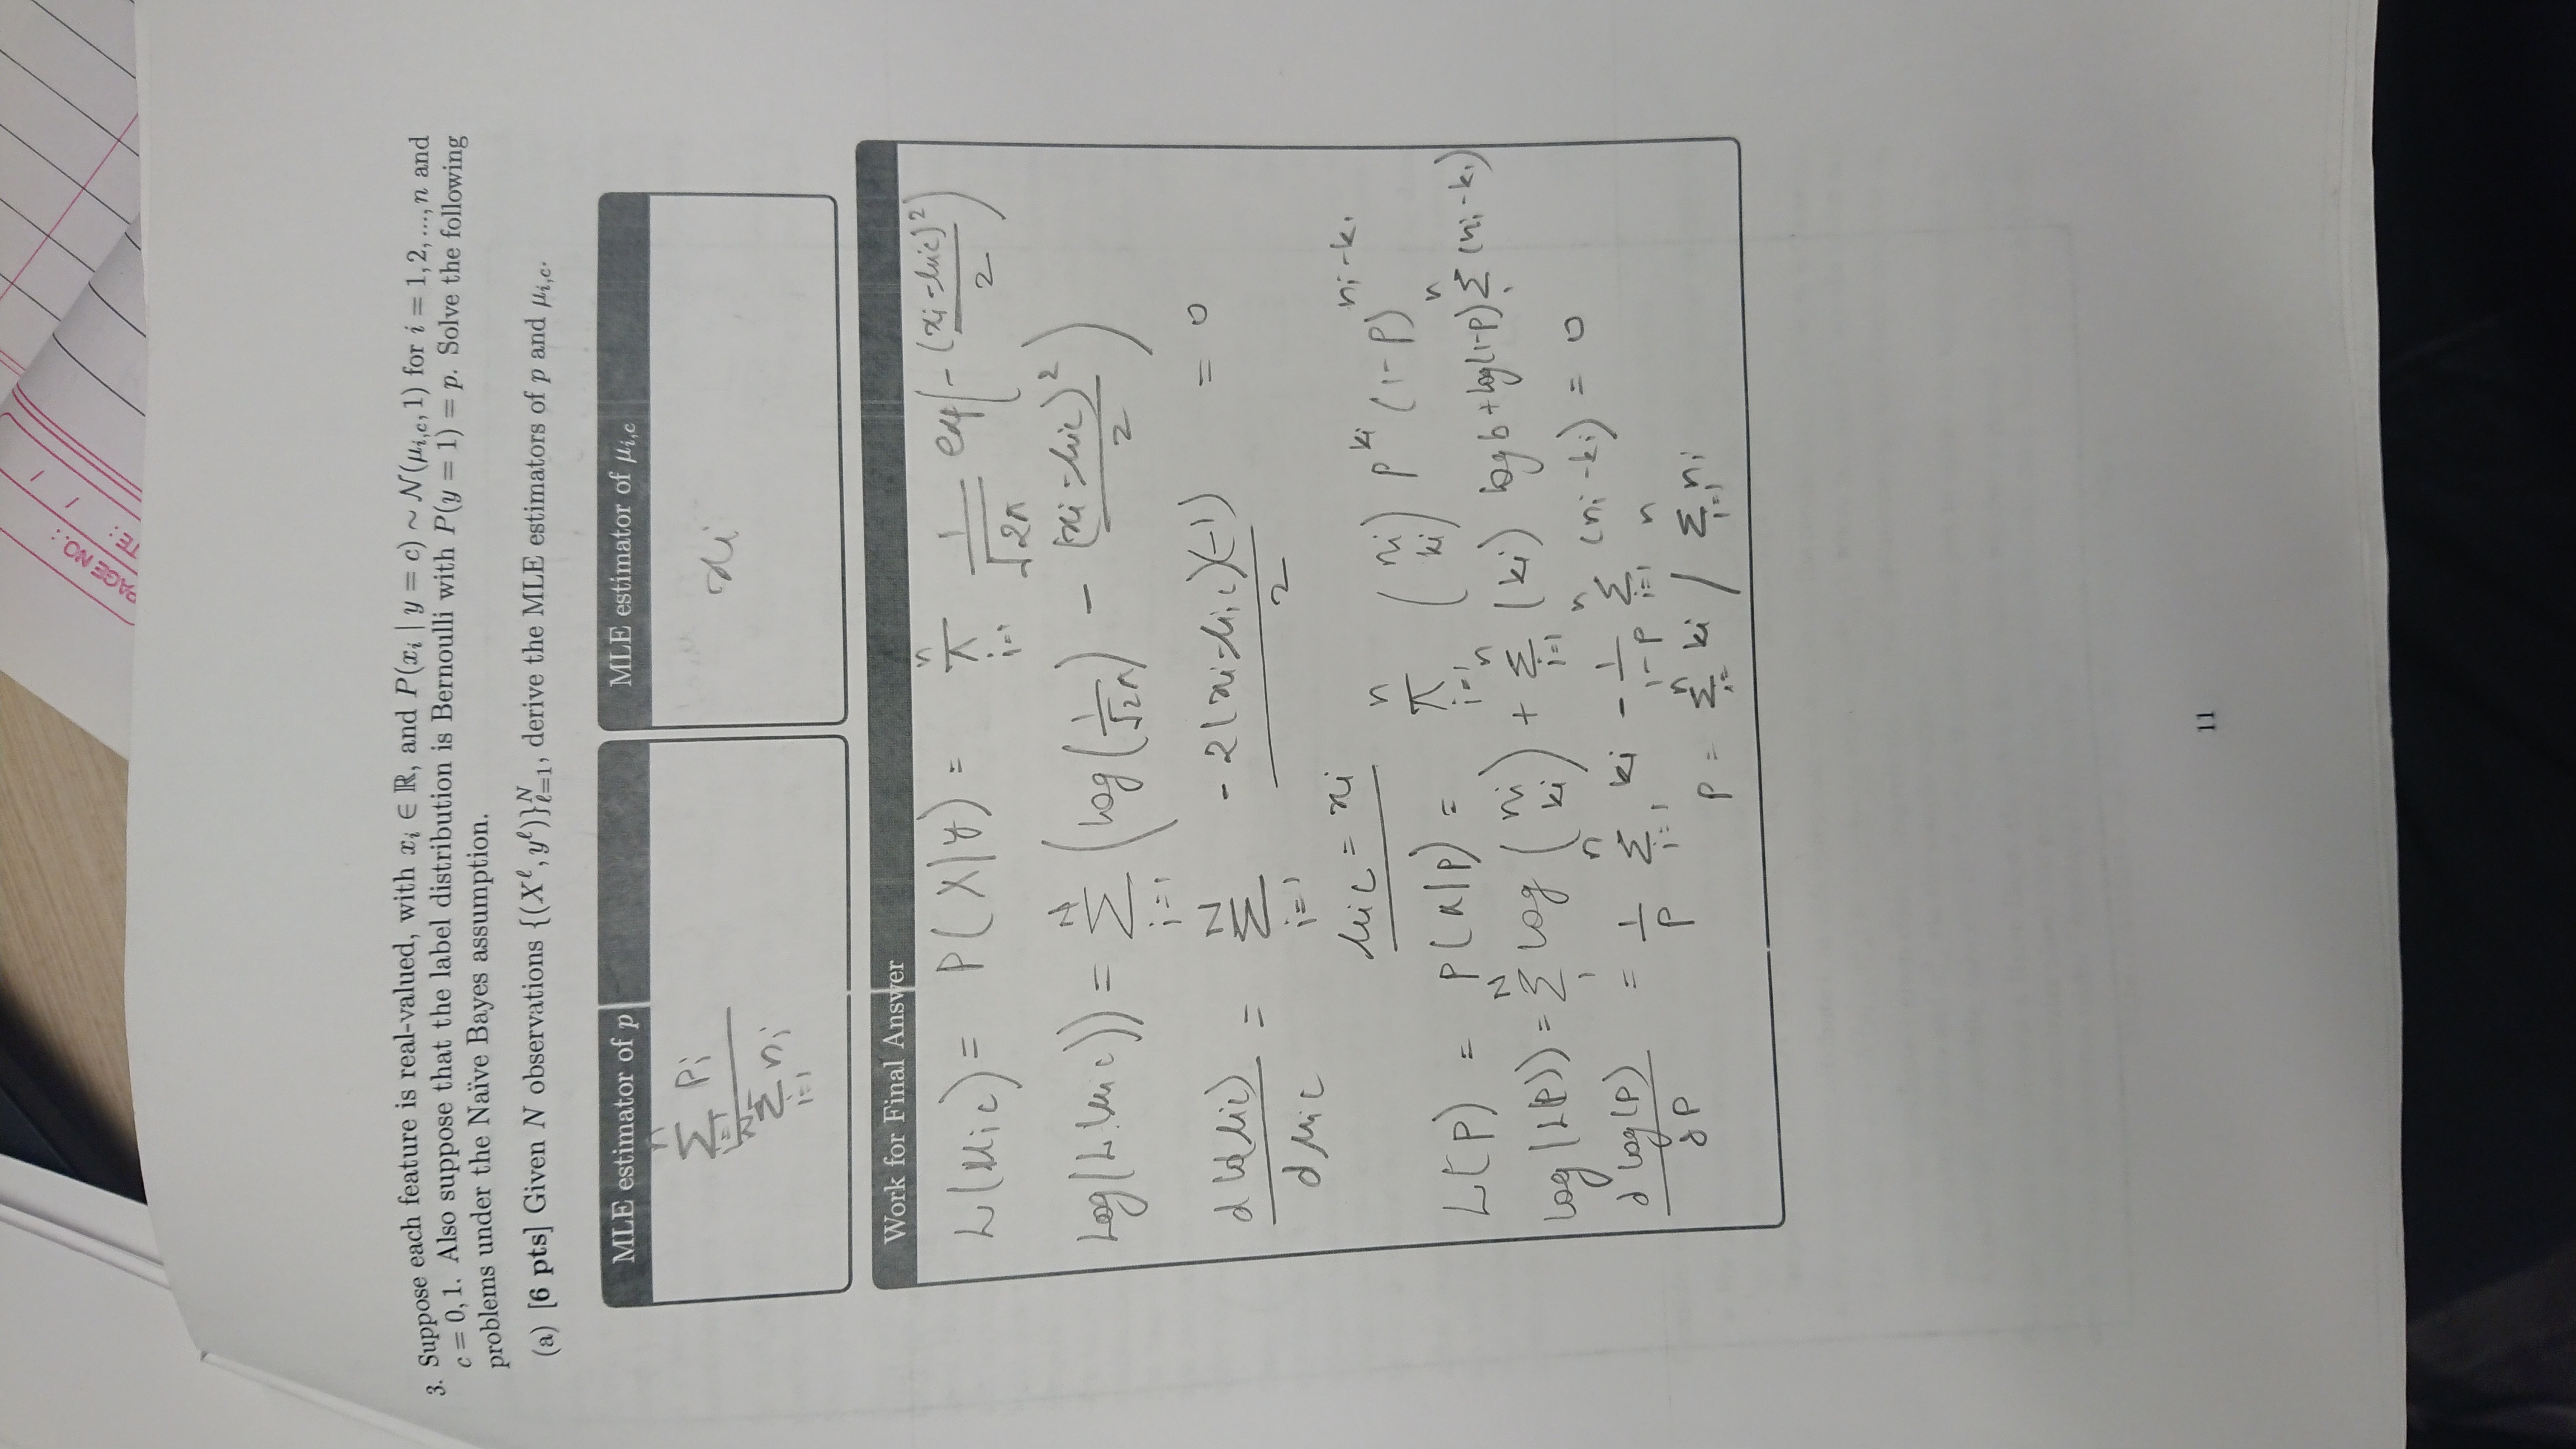 PAGE NO.:
TE: / /
3. Suppose each feature is real-valued, with xᵢ ∈ ℝ, and P(xᵢ | y = c) ~ N(μᵢ,c, 1) for i = 1, 2, ..., n and
c = 0, 1. Also suppose that the label distribution is Bernoulli with P(y = 1) = p. Solve the following
problems under the Naïve Bayes assumption.
(a) [6 pts] Given N observations {(X^ℓ, y^ℓ)}_{ℓ=1}^N, derive the MLE estimators of p and μᵢ,c.
MLE estimator of p
∑_{i=1}^n pᵢ / ∑_{i=1} nᵢ
MLE estimator of μᵢ,c
xᵢ
Work for Final Answer
L(μic) = P(X|y) = π_{i=1}^n 1/√2π exp(-(xᵢ-μic)²/2)
Log(L(μic)) = ∑_{i=1}^N (log(1/√2π) - (xᵢ-μic)²/2)
d log(μic)/dμic = ∑_{i=1}^N -2(xᵢ-μic)(-1)/2 = 0
μic = xᵢ
L(p) = P(x|p) = π_{i=1}^n (nᵢ kᵢ) p^{kᵢ} (1-p)^{nᵢ-kᵢ}
log(L(p)) = ∑_1^N log(nᵢ kᵢ) + ∑_{i=1}^n (kᵢ) log p + log(1-p) ∑^n (nᵢ-kᵢ)
d log(p)/dp = 1/p ∑_{i=1}^n kᵢ - 1/1-p ∑_{i=1}^n (nᵢ-kᵢ) = 0
p = ∑_{i=}^n kᵢ / ∑_{i=1}^n nᵢ
11